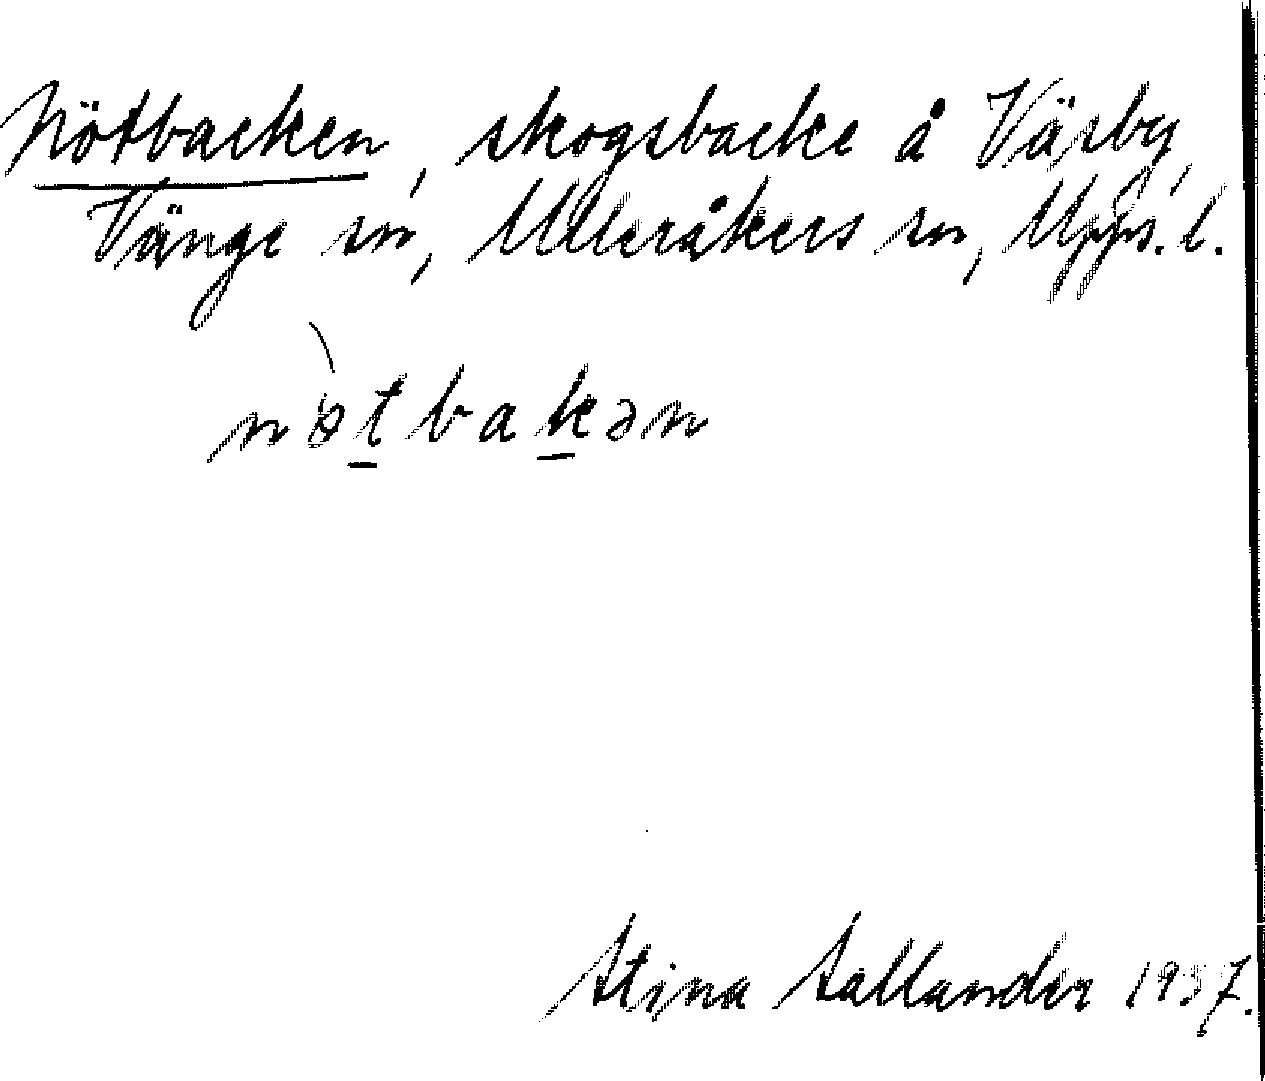 Nötbacken, skogsbacke å Väsby,
Vänge sn, Ulleråkers hd, Upps. l.
nòtbakən
Stina Sallander 1937.